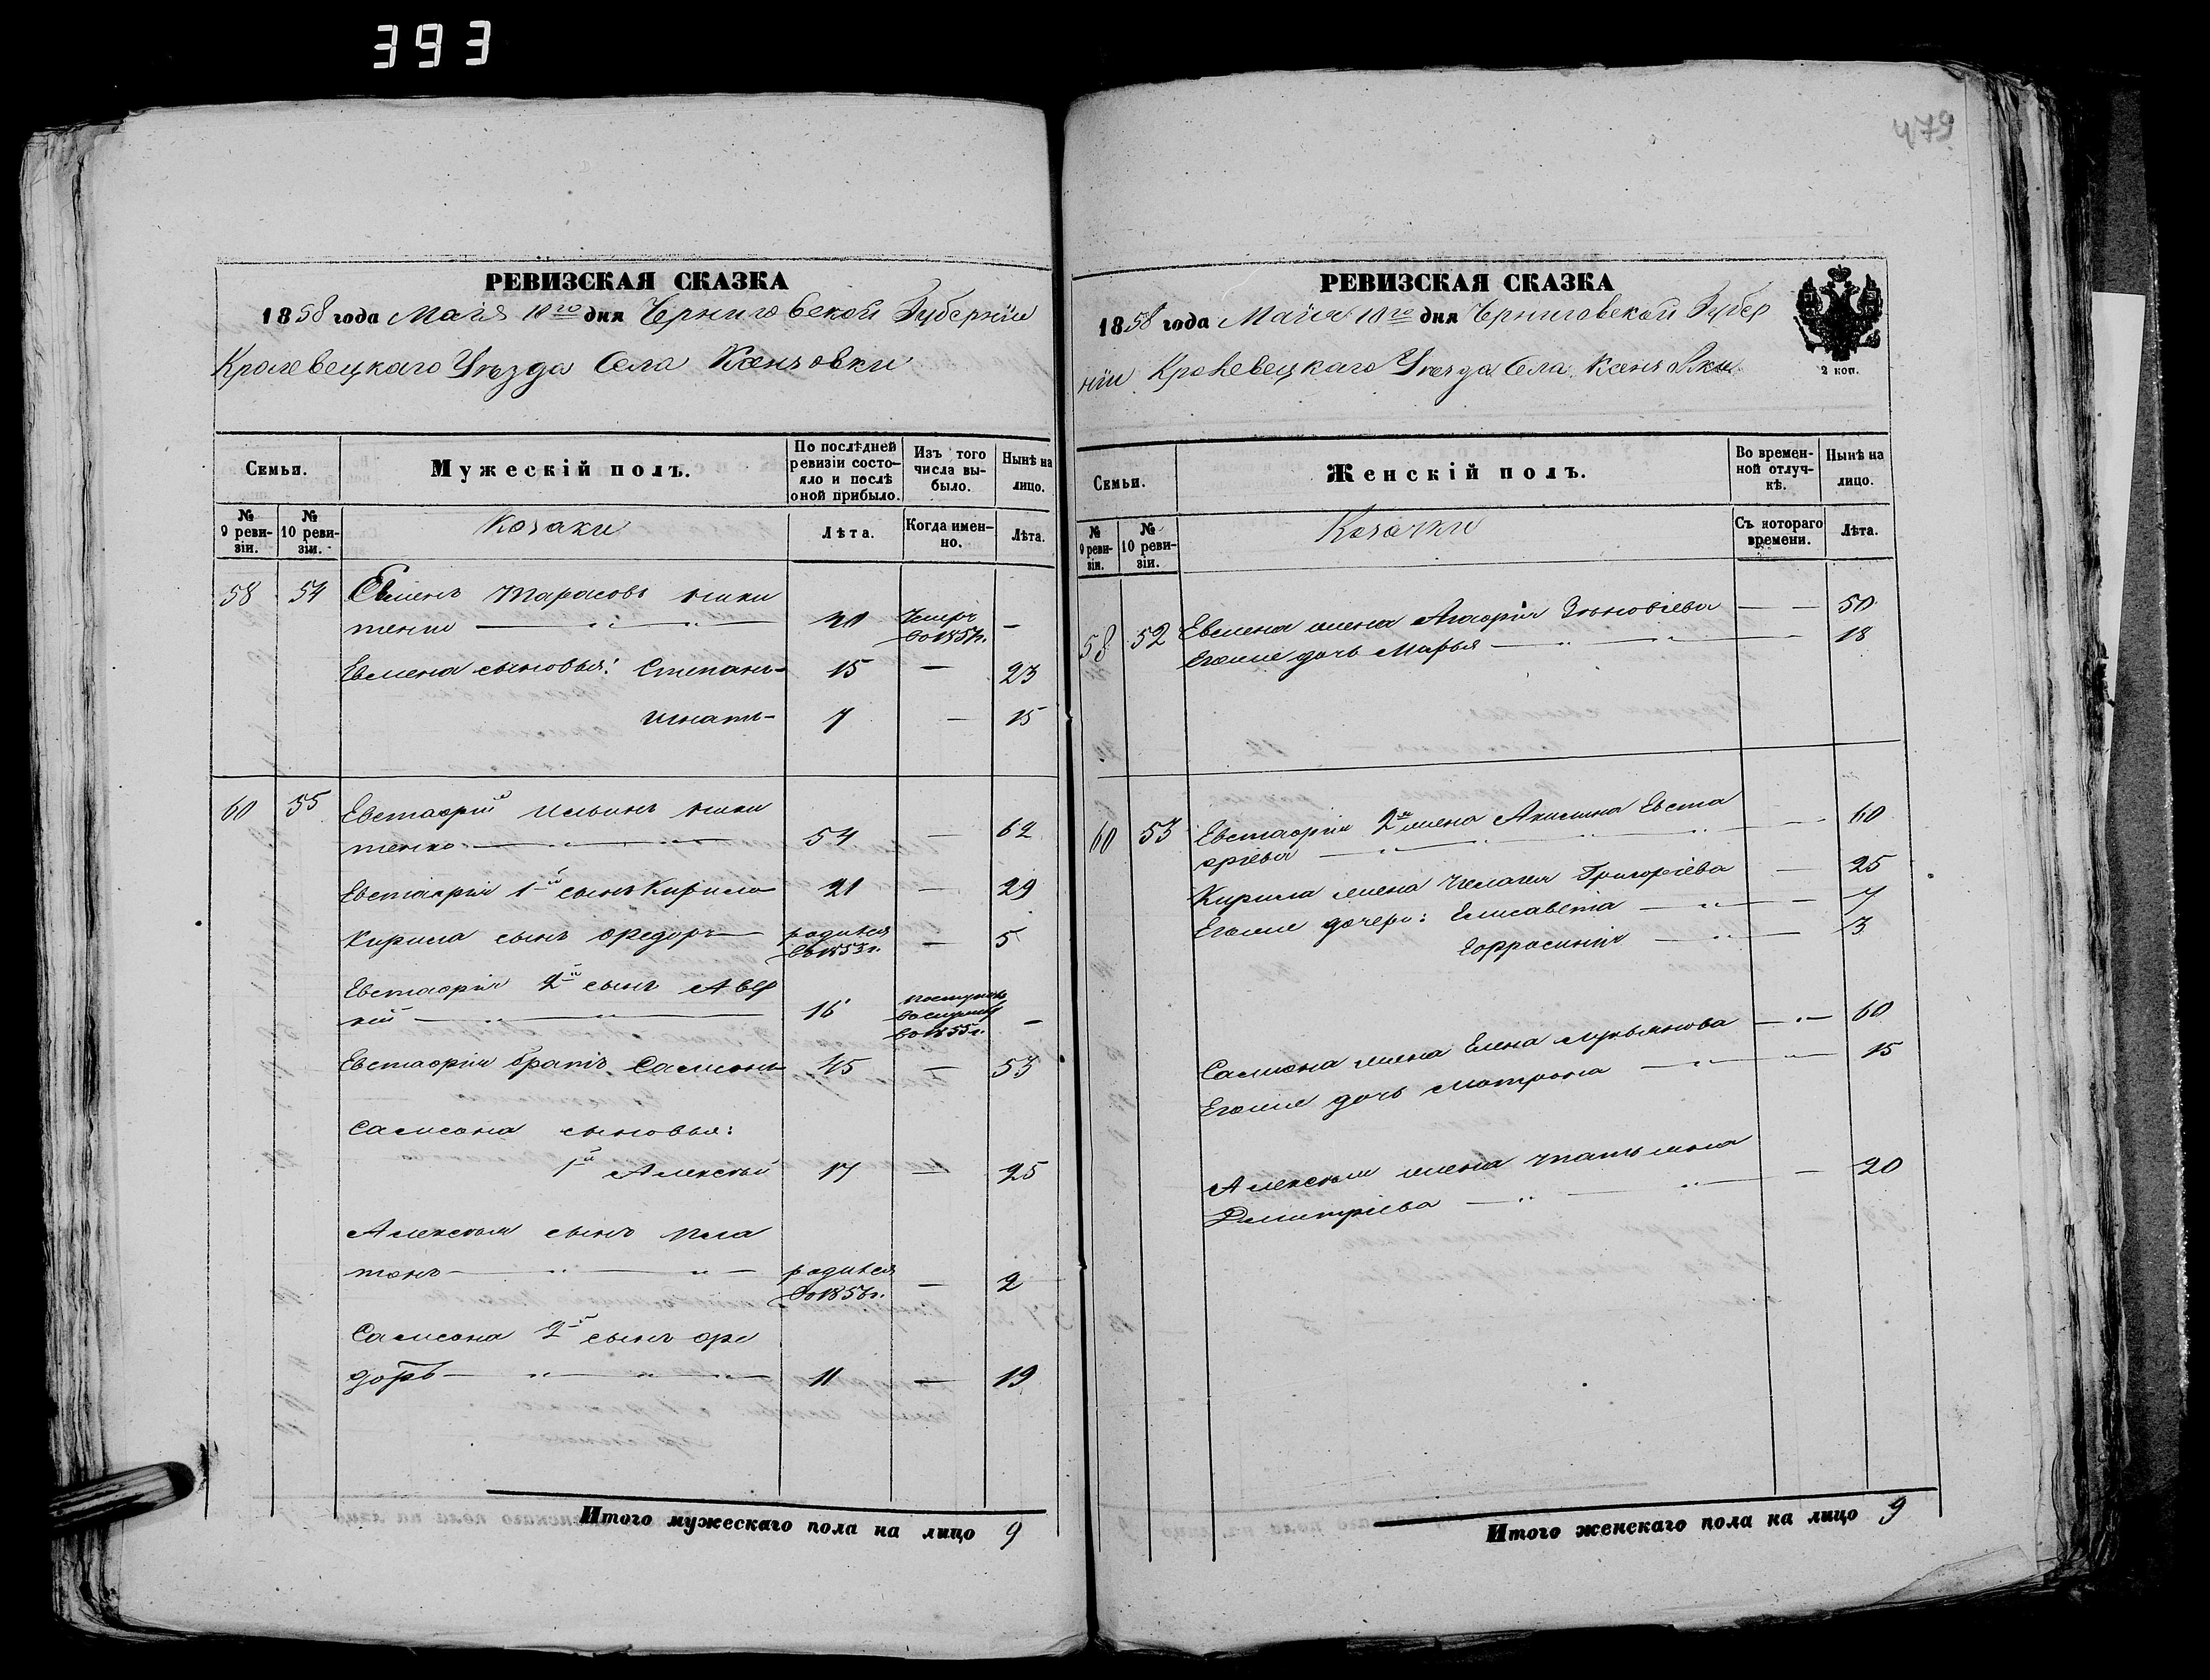 393
479
РЕВИЗСКАЯ СКАЗКА
1858 года Маія 10го дня Черниговской Губерніи
Кролевецкаго Уѣзда Села Ксензовки
Семьи.
Мужескій полъ.
По послѣдней ревизіи состояло и послѣ оной прибыло.
Изъ того числа выбыло.
Нынѣ на лицо.
№ 9 ревизіи.
№ 10 ревизіи.
Козаки
Лѣта.
Когда именно.
Лѣта.
58 54 Евменъ Тарасовъ Ники
тенко — „ — „ — 20 Умеръ въ 1857г. —
Евмена сыновья: Степанъ — 15 — 23
Игнатъ — 7 — 15
60 55 Евстафій Ильинъ Ники
тенко — „ — „ — 54 — 62
Евстафія 1й сынъ Кирило 21 — 29
Кирила сынъ Федоръ — родился въ 1853г. — 5
Евстафія 2й сынъ
— „ — „ — 16 въ 1855г. —
Евстафія братъ Самсонъ 45 — 53
Самсона сыновья:
1й Алексѣй 17 — 25
Алексѣя сынъ Пла
тонъ — „ — „ — родился въ 1856г. — 2
Самсона 2й сынъ Фе
доръ — „ — „ — „ — 11 — 19
Итого мужескаго пола на лицо 9
РЕВИЗСКАЯ СКАЗКА
1858 года Маія 10го дня Черниговской Губер
ніи Кролевецкаго Уѣзда Села Ксензовки
2 коп.
Семьи.
Женскій полъ.
Во временной отлучкѣ.
Нынѣ на лицо.
№ 9 ревизіи.
№ 10 ревизіи.
Козачки
Съ котораго времени.
Лѣта.
58 52 Евмена жена Агафія Зѣновіева — — 50
Егоже дочь Марья — „ — „ — 18
60 53 Евстафія 2я жена Акилина Евста
фіева — „ — „ — „ — 60
Кирила жена Пелагея Григоріева — 25
Егоже дочери: Елисавета — „ — — 7
Евфросинія — „ — 3
Самсона жена Елена Лукьянова — „ — 60
Егоже дочь Матрона — „ — „ — 15
Алексѣя жена Татьяна
Димитріева — „ — „ — — 20
Итого женскаго пола на лицо 9